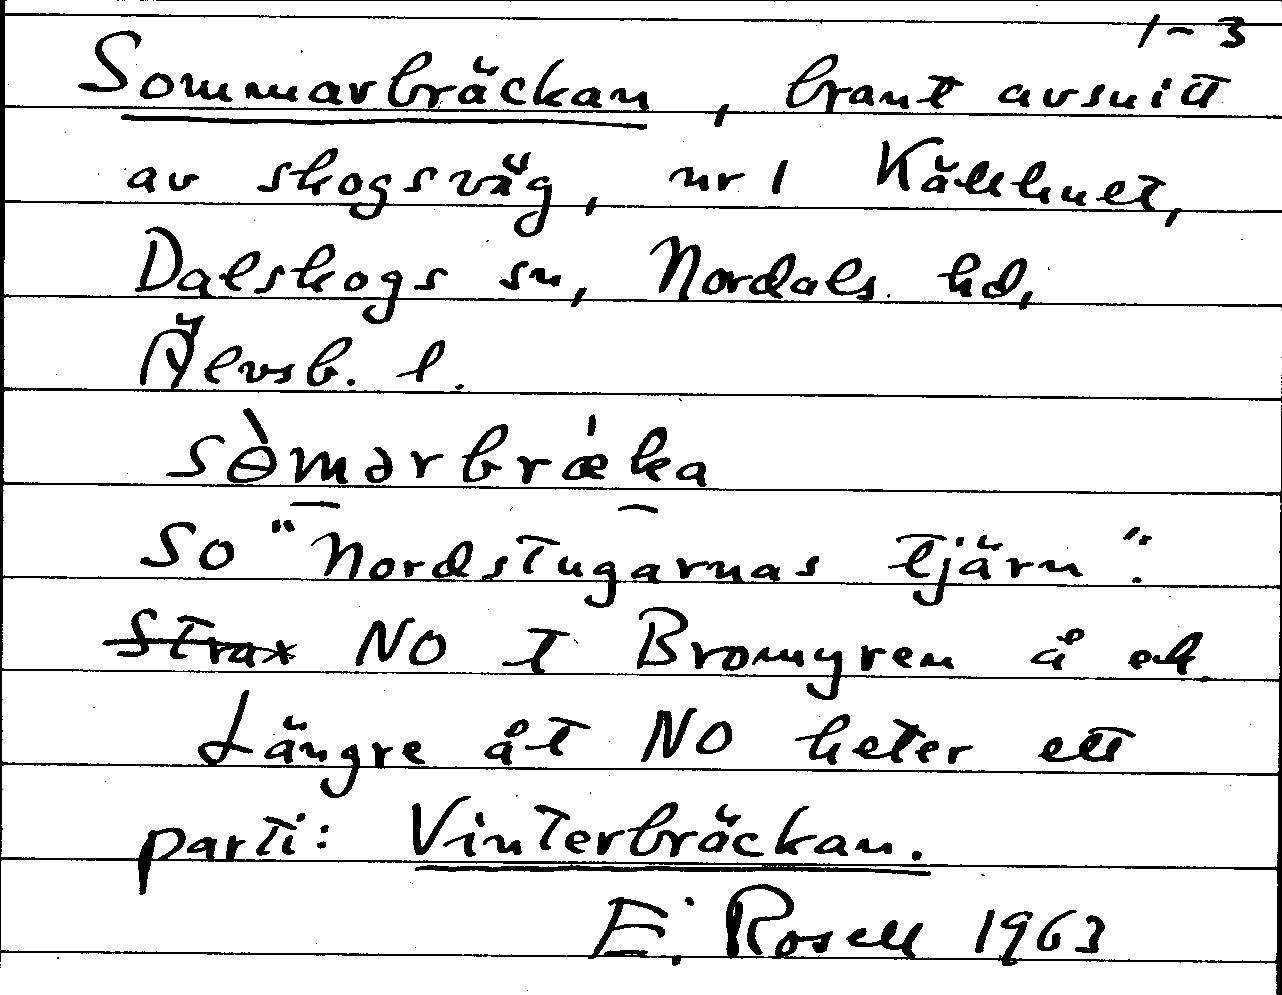 1-3
Sommarbräckan, brant avsnitt
av skogsväg, nr 1 Källhult,
Dalskogs sn, Nordals hd,
Älvsb. l.
sɵ̀mərbræ̍ka
SO "Nordstugarnas tjärn".
Strax NO t Bromyren å ek.
Längre åt NO heter ett
parti: Vinterbräckan.
E. Rosell 1963